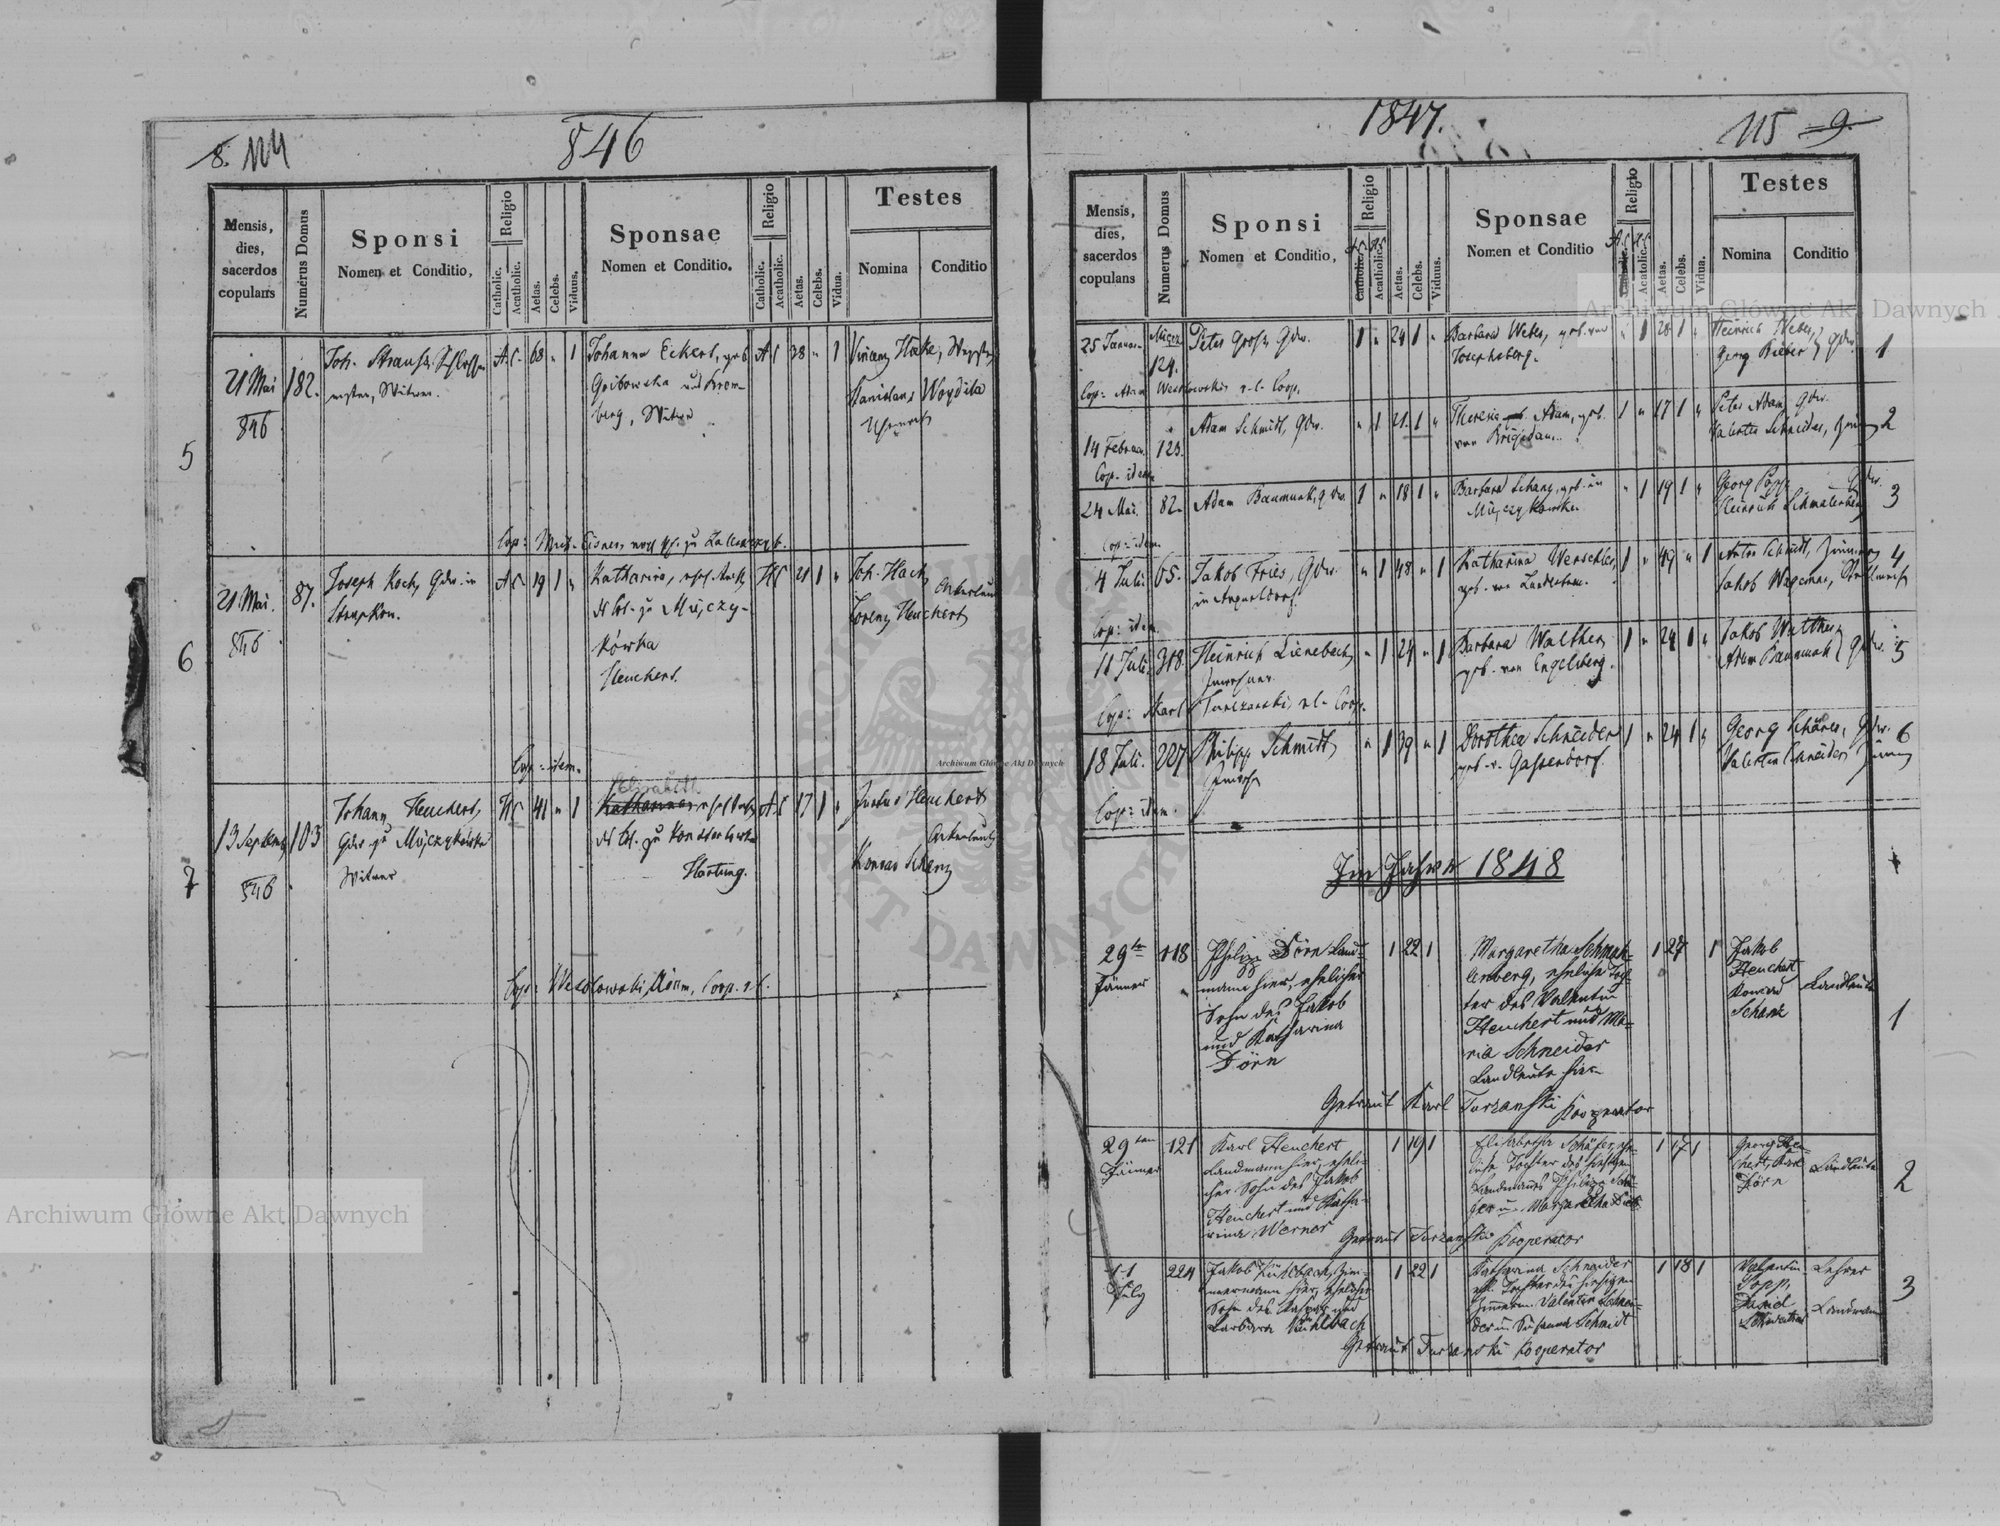 8. 114
846
Mensis, dies, sacerdos copulans
Numerus Domus
Sponsi
Nomen et Conditio,
Religio
Catholic.
Acatholic.
Aetas.
Celebs.
Viduus.
Sponsae
Nomen et Conditio.
Religio
Catholic.
Acatholic.
Aetas.
Celebs.
Vidua.
Testes
Nomina
Conditio
5
21 Mai
846
182.
Joh. Strauss
Witwer.
A.C. 68 " 1
Johanna Eckert, geb.
Gribowska
berg, Witwe
A.C 38 " 1
Stanislaus Woydila
6
21 Mai.
846
87.
Joseph Koch, Gdw. in
A.C 19 1 "
Katharina, ehl.
zu Mujczy-
kówka
Heuchert.
H.C 21 1 "
Joh. Hach
Ackerleute
Lorenz Heuchert
Cop: idem.
7
13 Septemb
846
103
Johann Heuchert,
Gdw. zu Mujczykówka
Witwer
H.C 41 " 1
Elisabeth
Katharina
Hartung.
A.C 17 1 "
Justus Heuchert
Ackerleute
Konrad Schanz
Cop: Wesolowski Adam, Coop. r.l.
1847.
115 9.
Mensis, dies, sacerdos copulans
Numerus Domus
Sponsi
Nomen et Conditio,
Religio
Catholic.
Acatholic.
Aetas.
Celebs.
Viduus.
Sponsae
Nomen et Conditio
Religio
Catholic.
Acatolic.
Aetas.
Celebs.
Vidua.
Testes
Nomina
Conditio
25 Januar.
124.
Peter Gross, Gdw.
1 " 24 1 "
Barbara Weber, geb. von
Josephsberg.
" 1 28 1 "
Heinrich Weber,
Georg Bieber Gdw.
1
Cop: Adam Wesolowski, r.l. Coop.
14 Februar.
123.
Adam Schmidt, Gdw.
" 1 21 1 "
Theresia Adam, geb.
von Brigidau.
1 " 17 1 "
Peter Adam, Gdw.
Valentin Schneider,
2
Cop. idem
24 Mai.
82.
Adam Baumunk, Gdw.
1 " 18 1 "
Barbara Schanz, geb. in
Mujczykowka.
" 1 19 1 "
Georg Popp
Gdw.
Heinrich Schmalenberg
3
Cop: idem.
4 Juli.
65.
Jakob Fries, Gdw.
in Angeldorf.
" 1 48 " 1
Katharina Wenschler,
geb. von Landestreu.
1 " 49 " 1
Anton Schmidt,
Jakob Wagemar,
4
Cop: idem.
11 Juli
318.
Heinrich Lienebach,
" 1 29 " 1
Barbara Walther,
geb. von Engelsberg.
1 " 24 1 "
Jakob Walther,
Adam Baumunk Gdw.
5
Cop: Karl Turczanski, r.l. Coop.
18 Juli.
227
Philipp Schmidt,
" 1 39 " 1
Dorothea Schneider
geb. v. Gassendorf.
1 " 24 1 "
Georg Schäfer, Gdw.
Valentin Schneider,
6
Cop: idem.
Im Jahre 1848
29te
Jänner
118
Philipp Dörn Land-
mann hier, ehelicher
Sohn des Jakob
und Katharina
Dörn
1 22 1
Margaretha Schmah-
lenberg, eheliche Toch-
ter des Valentin
Heuchert und Ma-
ria Schneider
Landleute hier
1 27 1
Jakob
Heuchert
Konrad
Schanz
Landleute
1
Getraut Karl Turzanski Kooperator
29ten
Jänner
121
Karl Heuchert
Landmann hier, eheli-
cher Sohn des Jakob
Heuchert und Katha-
rina Werner
1 19 1
Elisabetha Schäfer, ehe-
liche Tochter des hiesigen
Landmanns Philipp Schä-
fer u. Margaretha
1 17 1
Georg Heu-
chert, Karl
Dörn
Landleute
2
Getraut Turzanski Kooperator
11
July
224
Jakob Kühlbach, Zim-
mermann hier, ehelicher
Sohn des Kaspar und
Barbara Kühlbach
1 22 1
Katharina Schneider
ehl. Tochter des hiesigen
Zimmerm. Valentin Schnei-
der u. Susanna Schmidt
1 18 1
Valentin
Popp,
David
Lehrer
Landmann
3
Getraut Turzanski Kooperator
Archiwum Główne Akt Dawnych
Archiwum Główne Akt Dawnych
Archiwum Główne Akt Dawnych